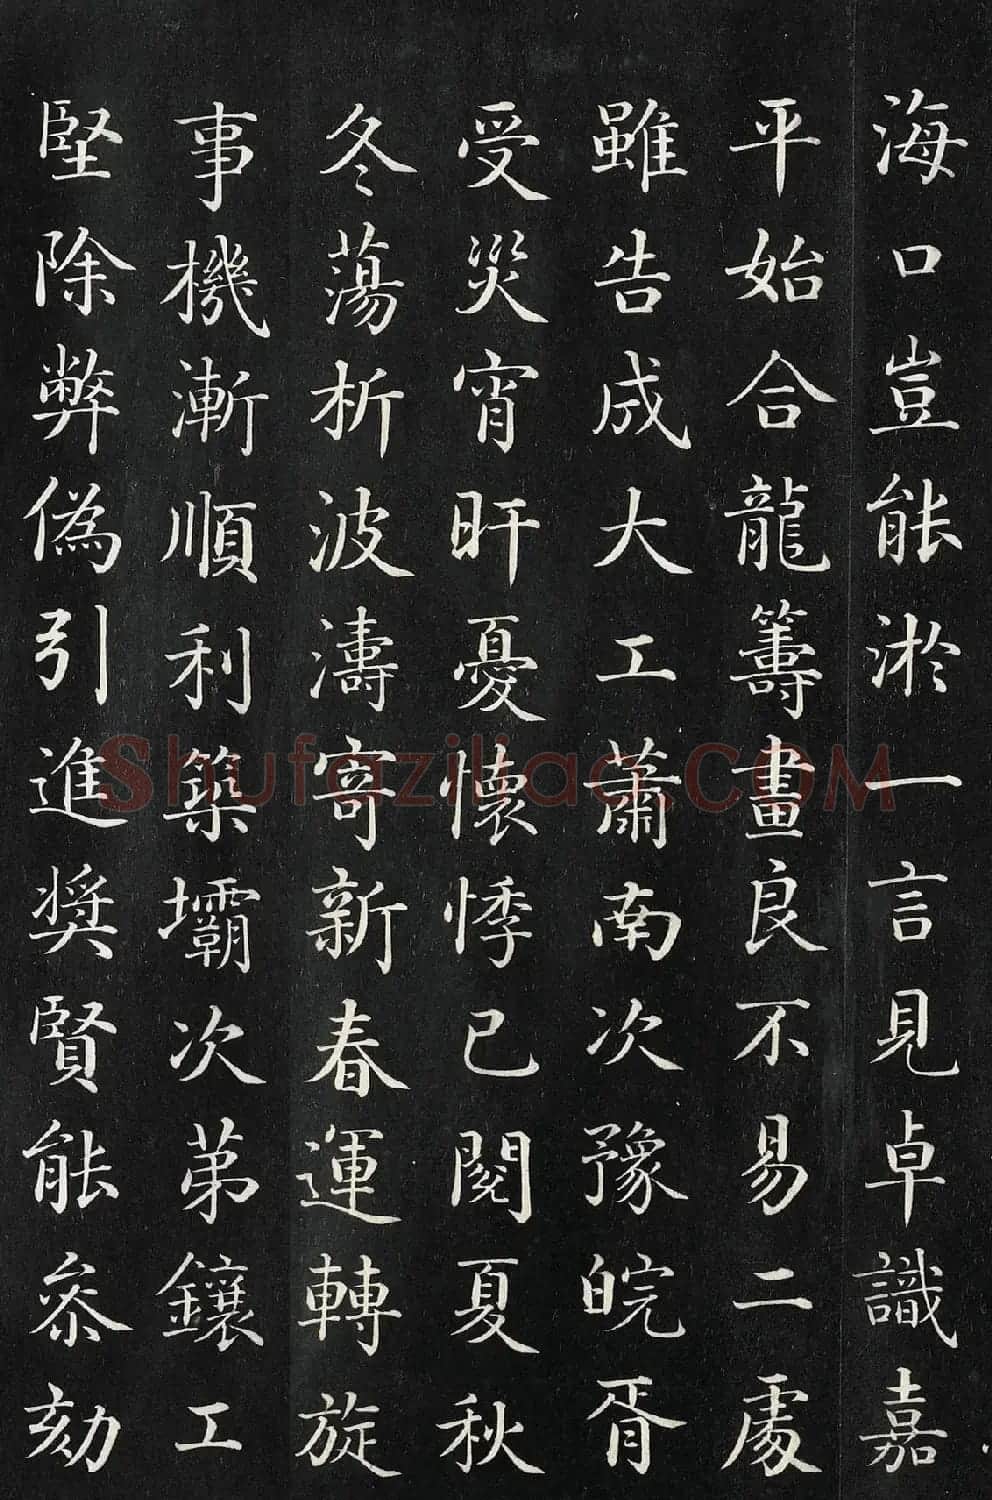 海口豈能淤一言見卓識嘉
平始合龍籌畫良不易二處
雖告成大工蕭南次豫皖胥
受災宵旰憂懷悸已閱夏秋
冬蕩析波濤寄新春運轉旋
事機漸順利築壩次第鑲工
堅除弊偽引進奬賢能叅劾
Shufaziliao.COM